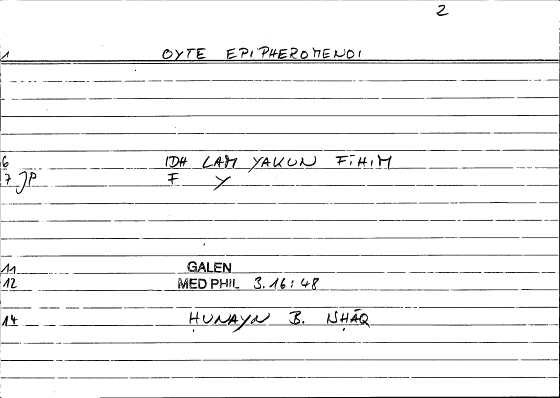 2
1 OYTE EPIPHEROMENOI
6 IDH LAM YAKUN FĪHIM
7 JP F Y
11 GALEN
12 MED PHIL 3.16:48
14 ḤUNAYN B. ISḤĀQ